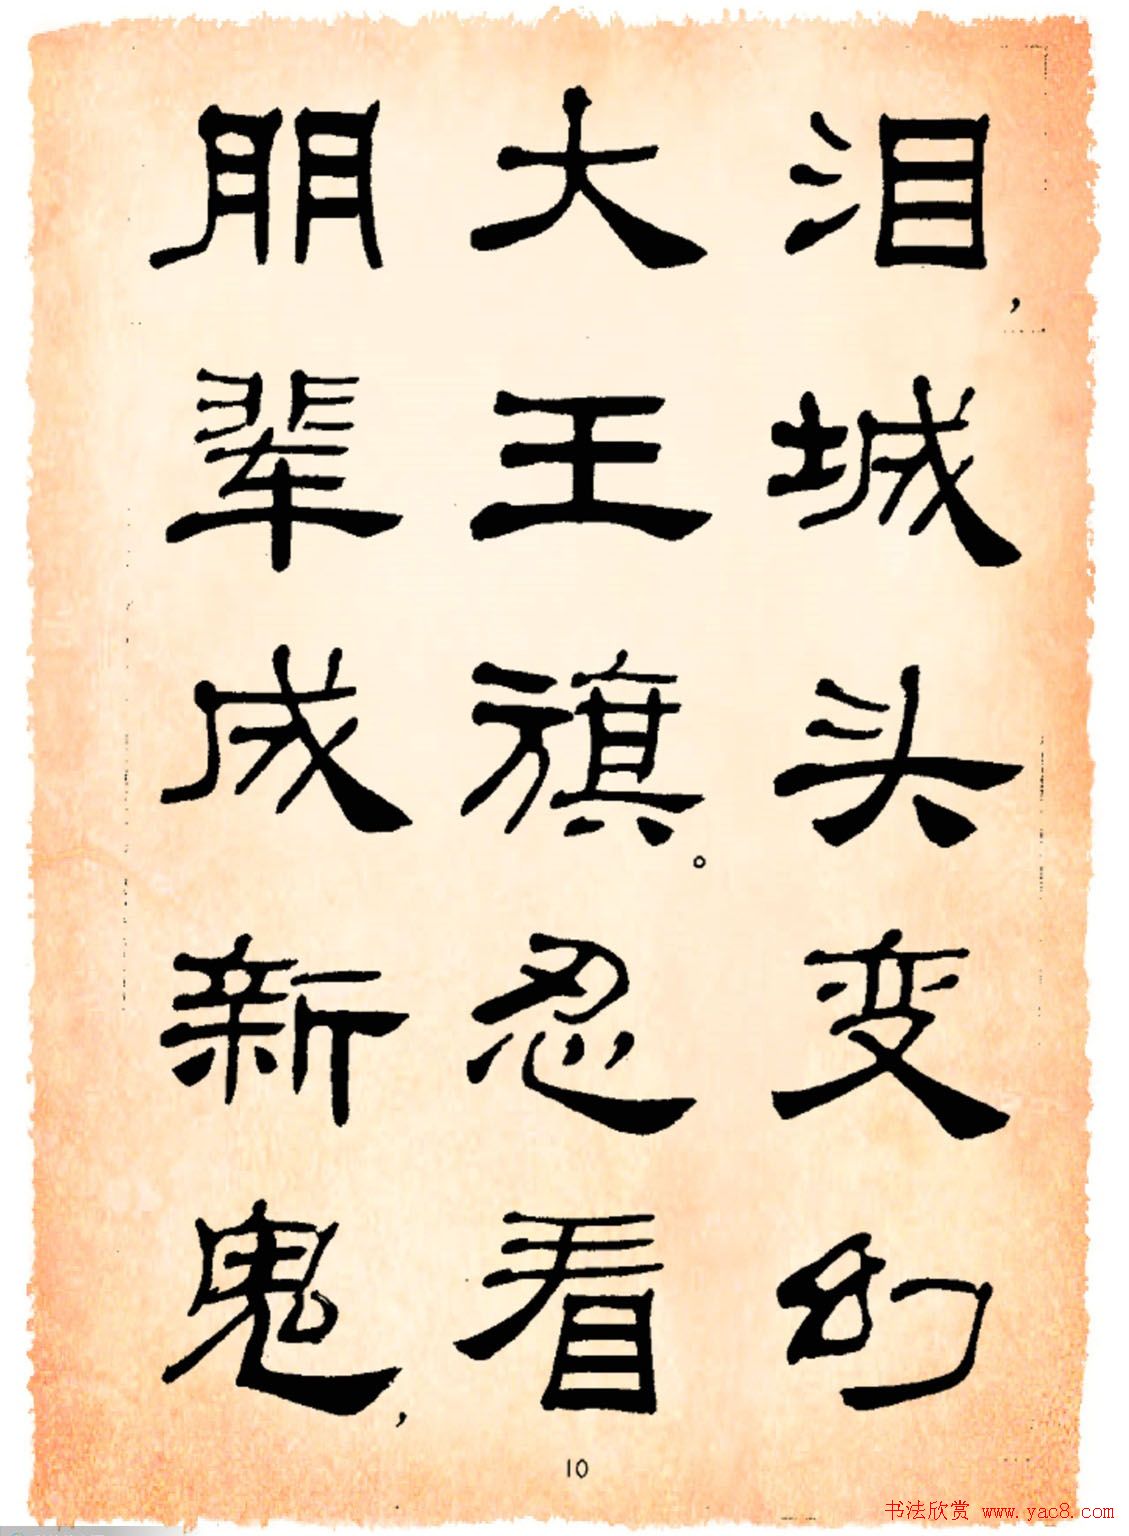 泪，城头变幻
大王旗。忍看
朋辈成新鬼，
10
书法欣赏 www.yac8.com